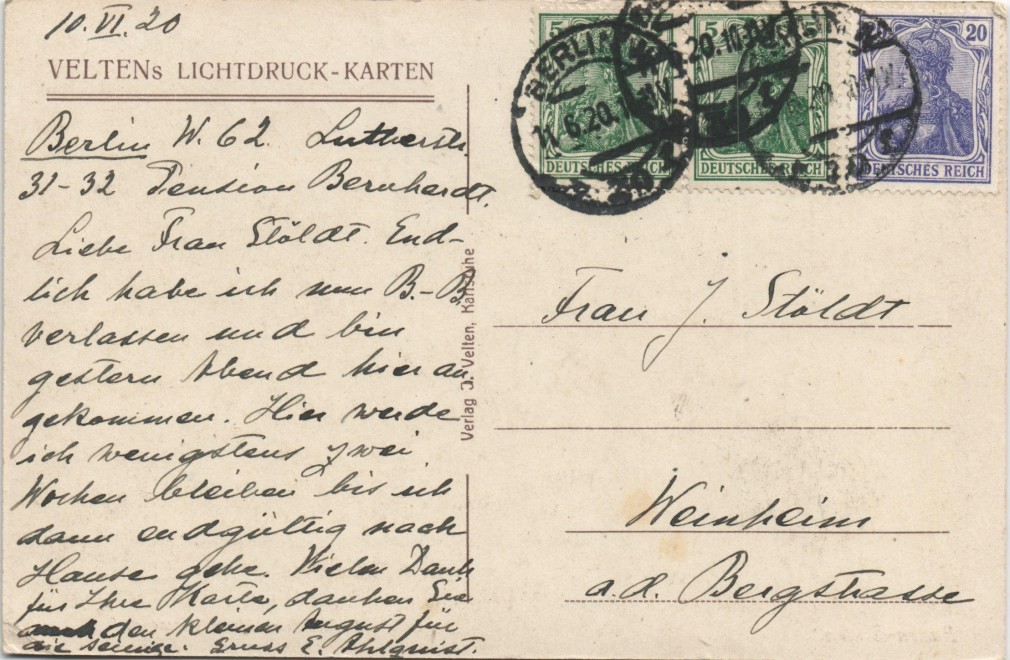 10.VI.20
VELTENs LICHTDRUCK-KARTEN
Berlin W. 62. Lutherstr.
31-32 Pension Bernhardt.
Liebe Frau Stöldt. End-
lich habe ich nun B.-B.
verlassen und bin
gestern Abend hier an
gekommen. Hier werde
ich wenigstens zwei
Wochen bleiben bis ich
dann endgültig nach
Hause gehe. Vielen Dank
für Ihre Karte, danken Sie
den kleinen August für
die seinige. Gruss E. Ahlquist.
Verlag J. Velten, Karlsruhe
5
5
20
DEUTSCHES REICH
DEUTSCHES REICH
DEUTSCHES REICH
BERLIN W
11.6.20.
Frau J. Stöldt
Weinheim
a.d. Bergstrasse